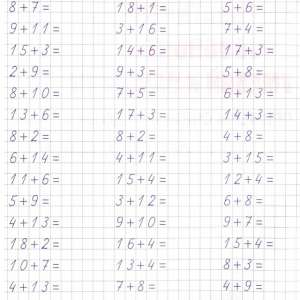 8+7= 18+1= 5+6=
9+11= 3+16= 7+4=
15+3= 14+6= 17+3=
2+9= 9+3= 5+8=
8+10= 7+5= 6+13=
13+6= 17+3= 14+3=
8+2= 8+2= 4+8=
6+14= 4+11= 3+15=
11+6= 15+4= 12+4=
5+9= 3+12= 6+8=
4+13= 9+10= 9+7=
18+2= 16+4= 15+4=
10+7= 13+4= 8+3=
4+13= 7+8= 4+9=